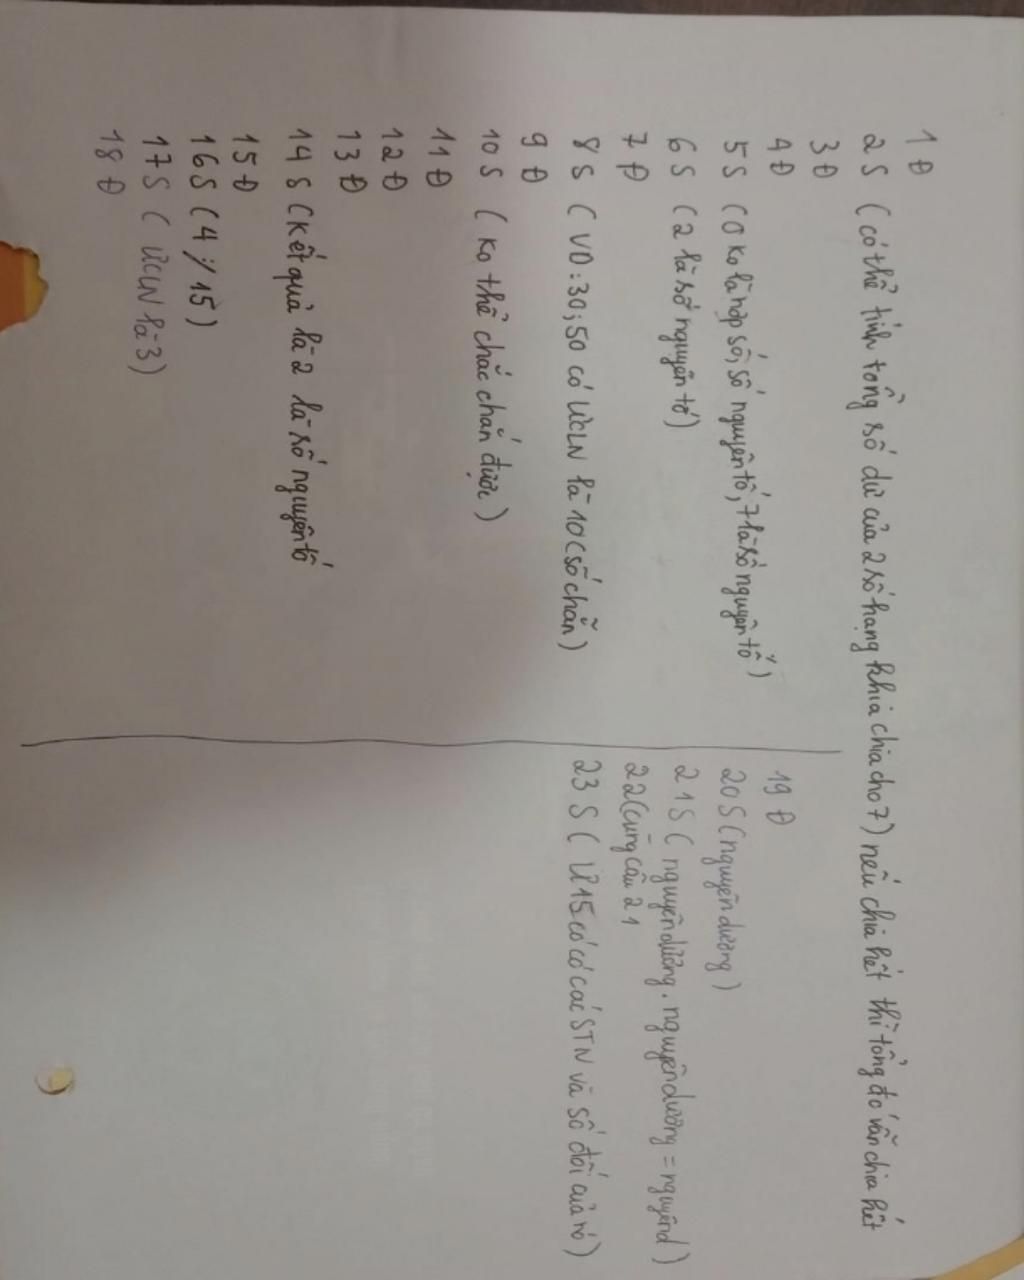 1 Đ
2 S (có thể tính tổng số dư của 2 số hạng khia chia cho 7) nếu chia hết thì tổng đó vẫn chia hết
3 Đ
4 Đ
5 S (0 ko là hợp số, số nguyên tố, 7 là số nguyên tố)
6 S (2 là số nguyên tố)
7 Đ
8 S (VD: 30; 50 có ƯCLN là 10 (số chẵn)
9 Đ
10 S (ko thể chắc chắn được)
11 Đ
12 Đ
13 Đ
14 S (Kết quả là 2 là số nguyên tố
15 Đ
16 S (4 :/ 15)
17 S (ƯCLN là 3)
18 Đ
19 Đ
20 S (nguyên dương)
21 S (nguyên dương. nguyên dương = nguyên d)
22 (cùng câu 21
23 S (Ư 15 có có các STN và số đối của nó)